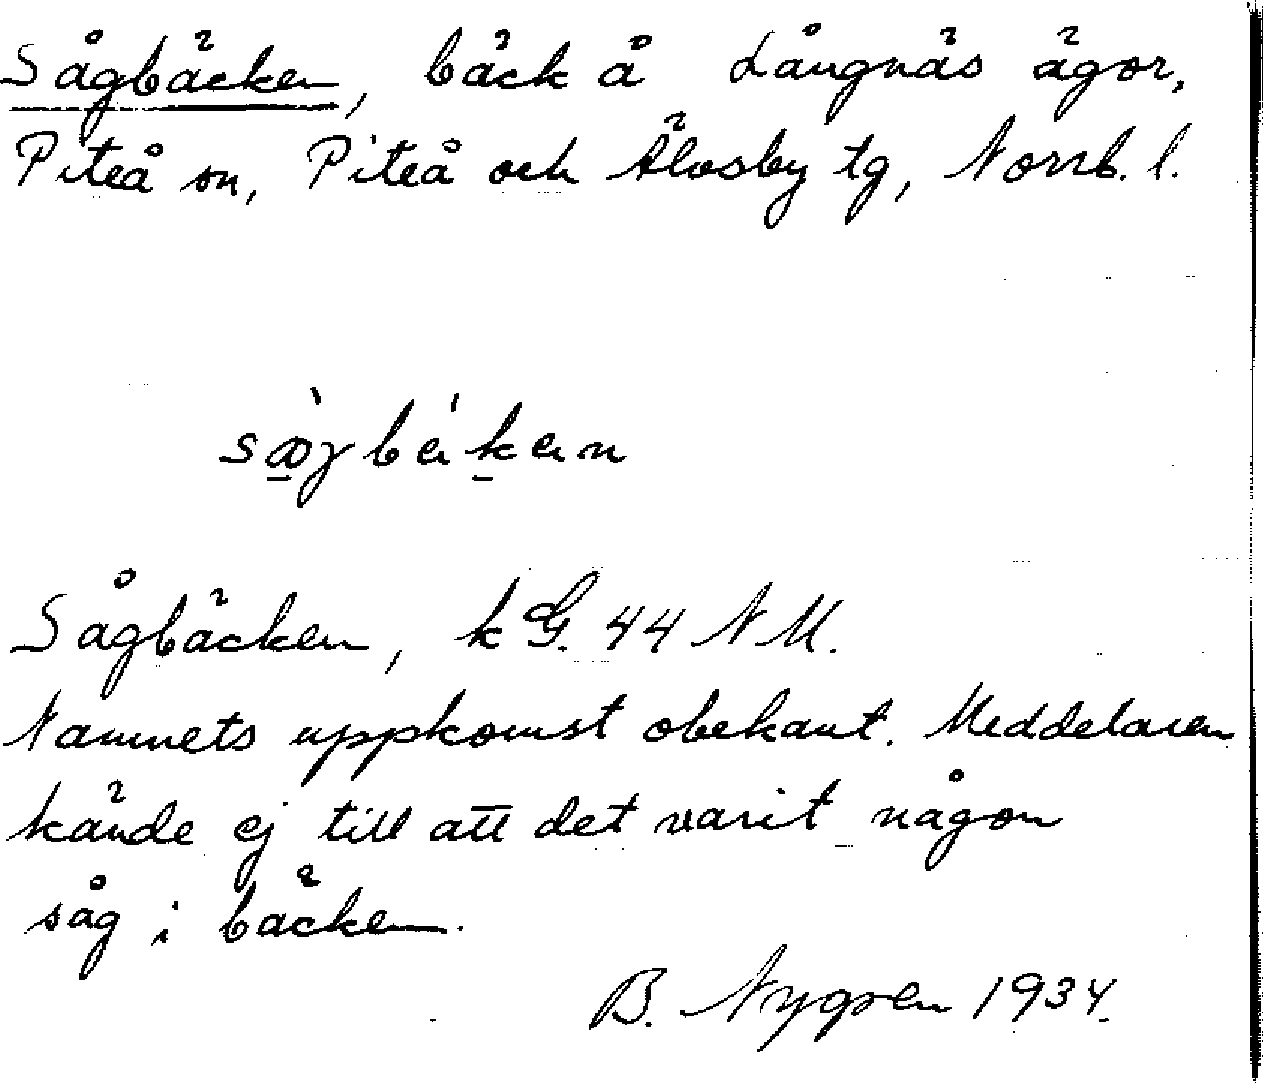 Sågbäcken, bäck å Långnäs ägor,
Piteå sn, Piteå och Älvsby tg, Norrb. l.
Sågbäcken, k G. 44 N M.
Namnets uppkomst obekant. Meddelaren
kände ej till att det varit någon
såg i bäcken.
B. Nygren 1934.